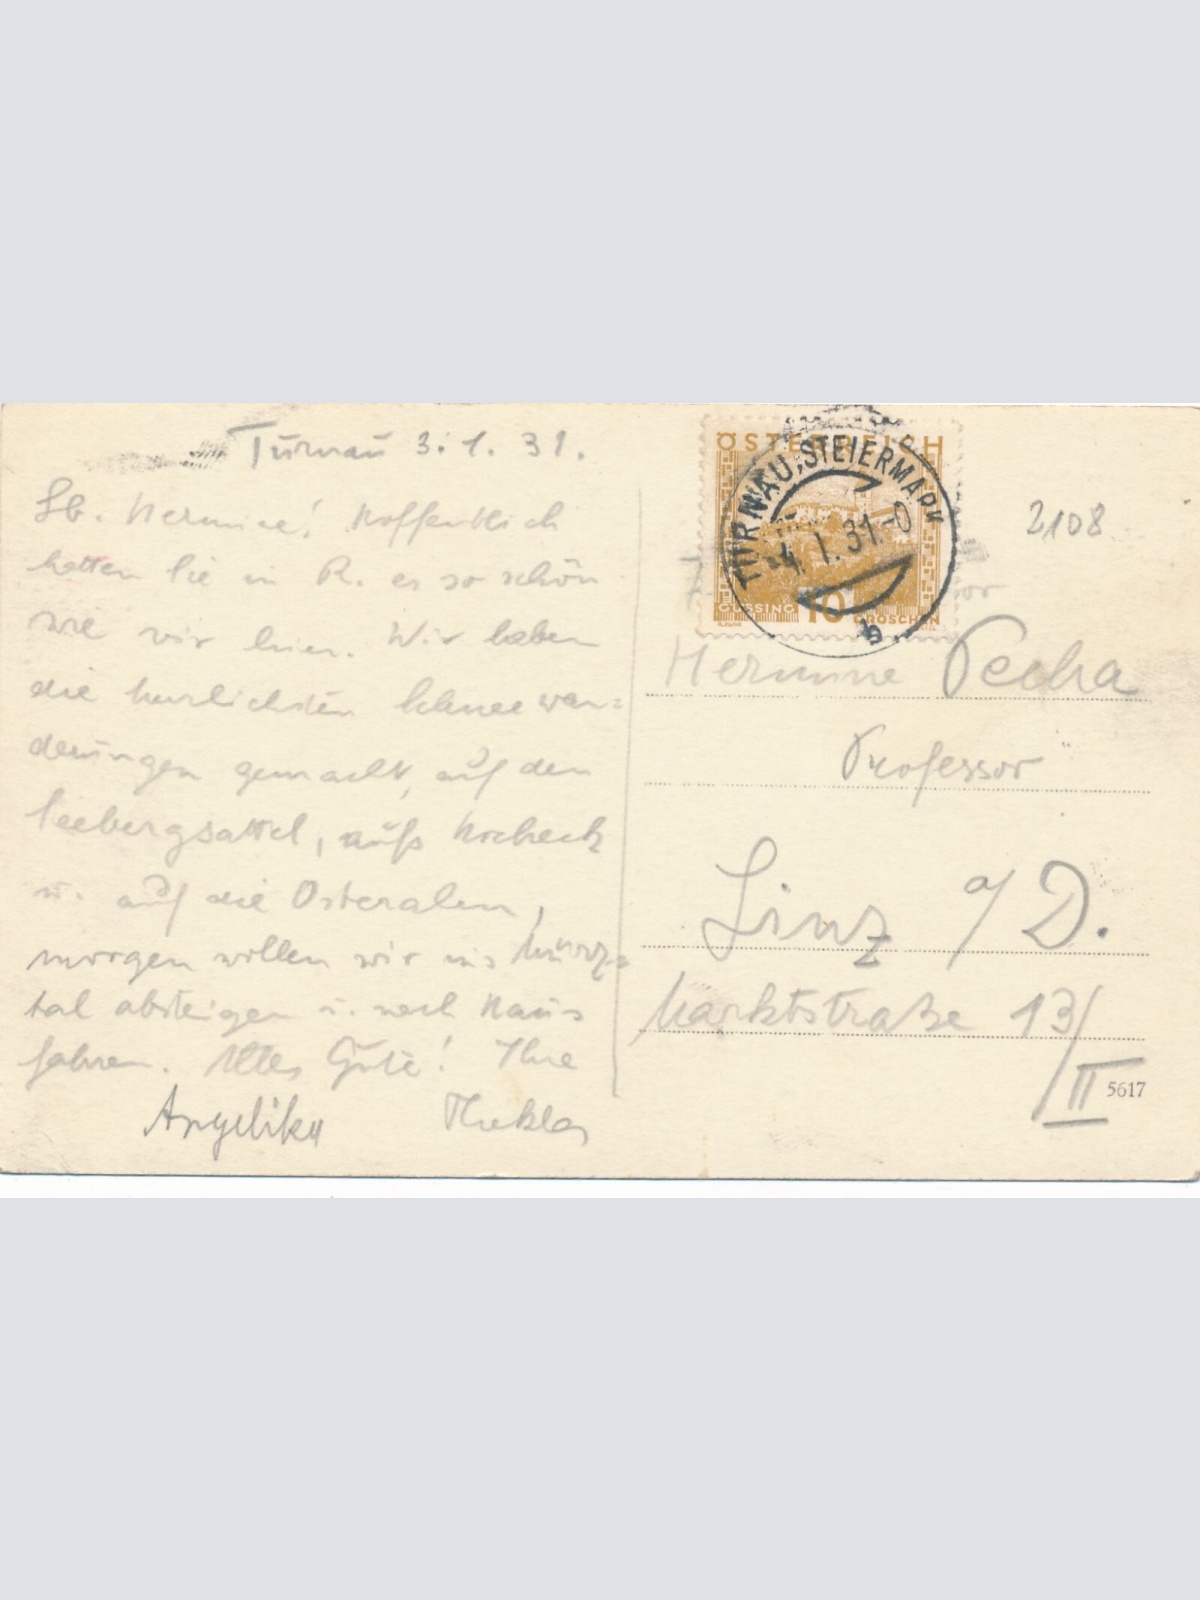 Turnau 3.1.31.
Lb. Hermine! Hoffentlich
hatten Sie in R. es so schön
wie wir hier. Wir haben
die herrlichsten Schneewan=
derungen gemacht, auf den
Seebergsattel, aufs Hocheck
u. auf die Osteralm,
morgen wollen wir ins Mürz=
tal absteigen u. nach Haus
fahren. Alles Gute! Ihre
Angelika Thekla
ÖSTERREICH
TURNAU, STEIERMARK
-4.I.31.-0
b
GÜSSING 10 GROSCHEN
2108
Hermine Pecha
Professor
Linz a/D.
Marktstraße 13/
II
5617